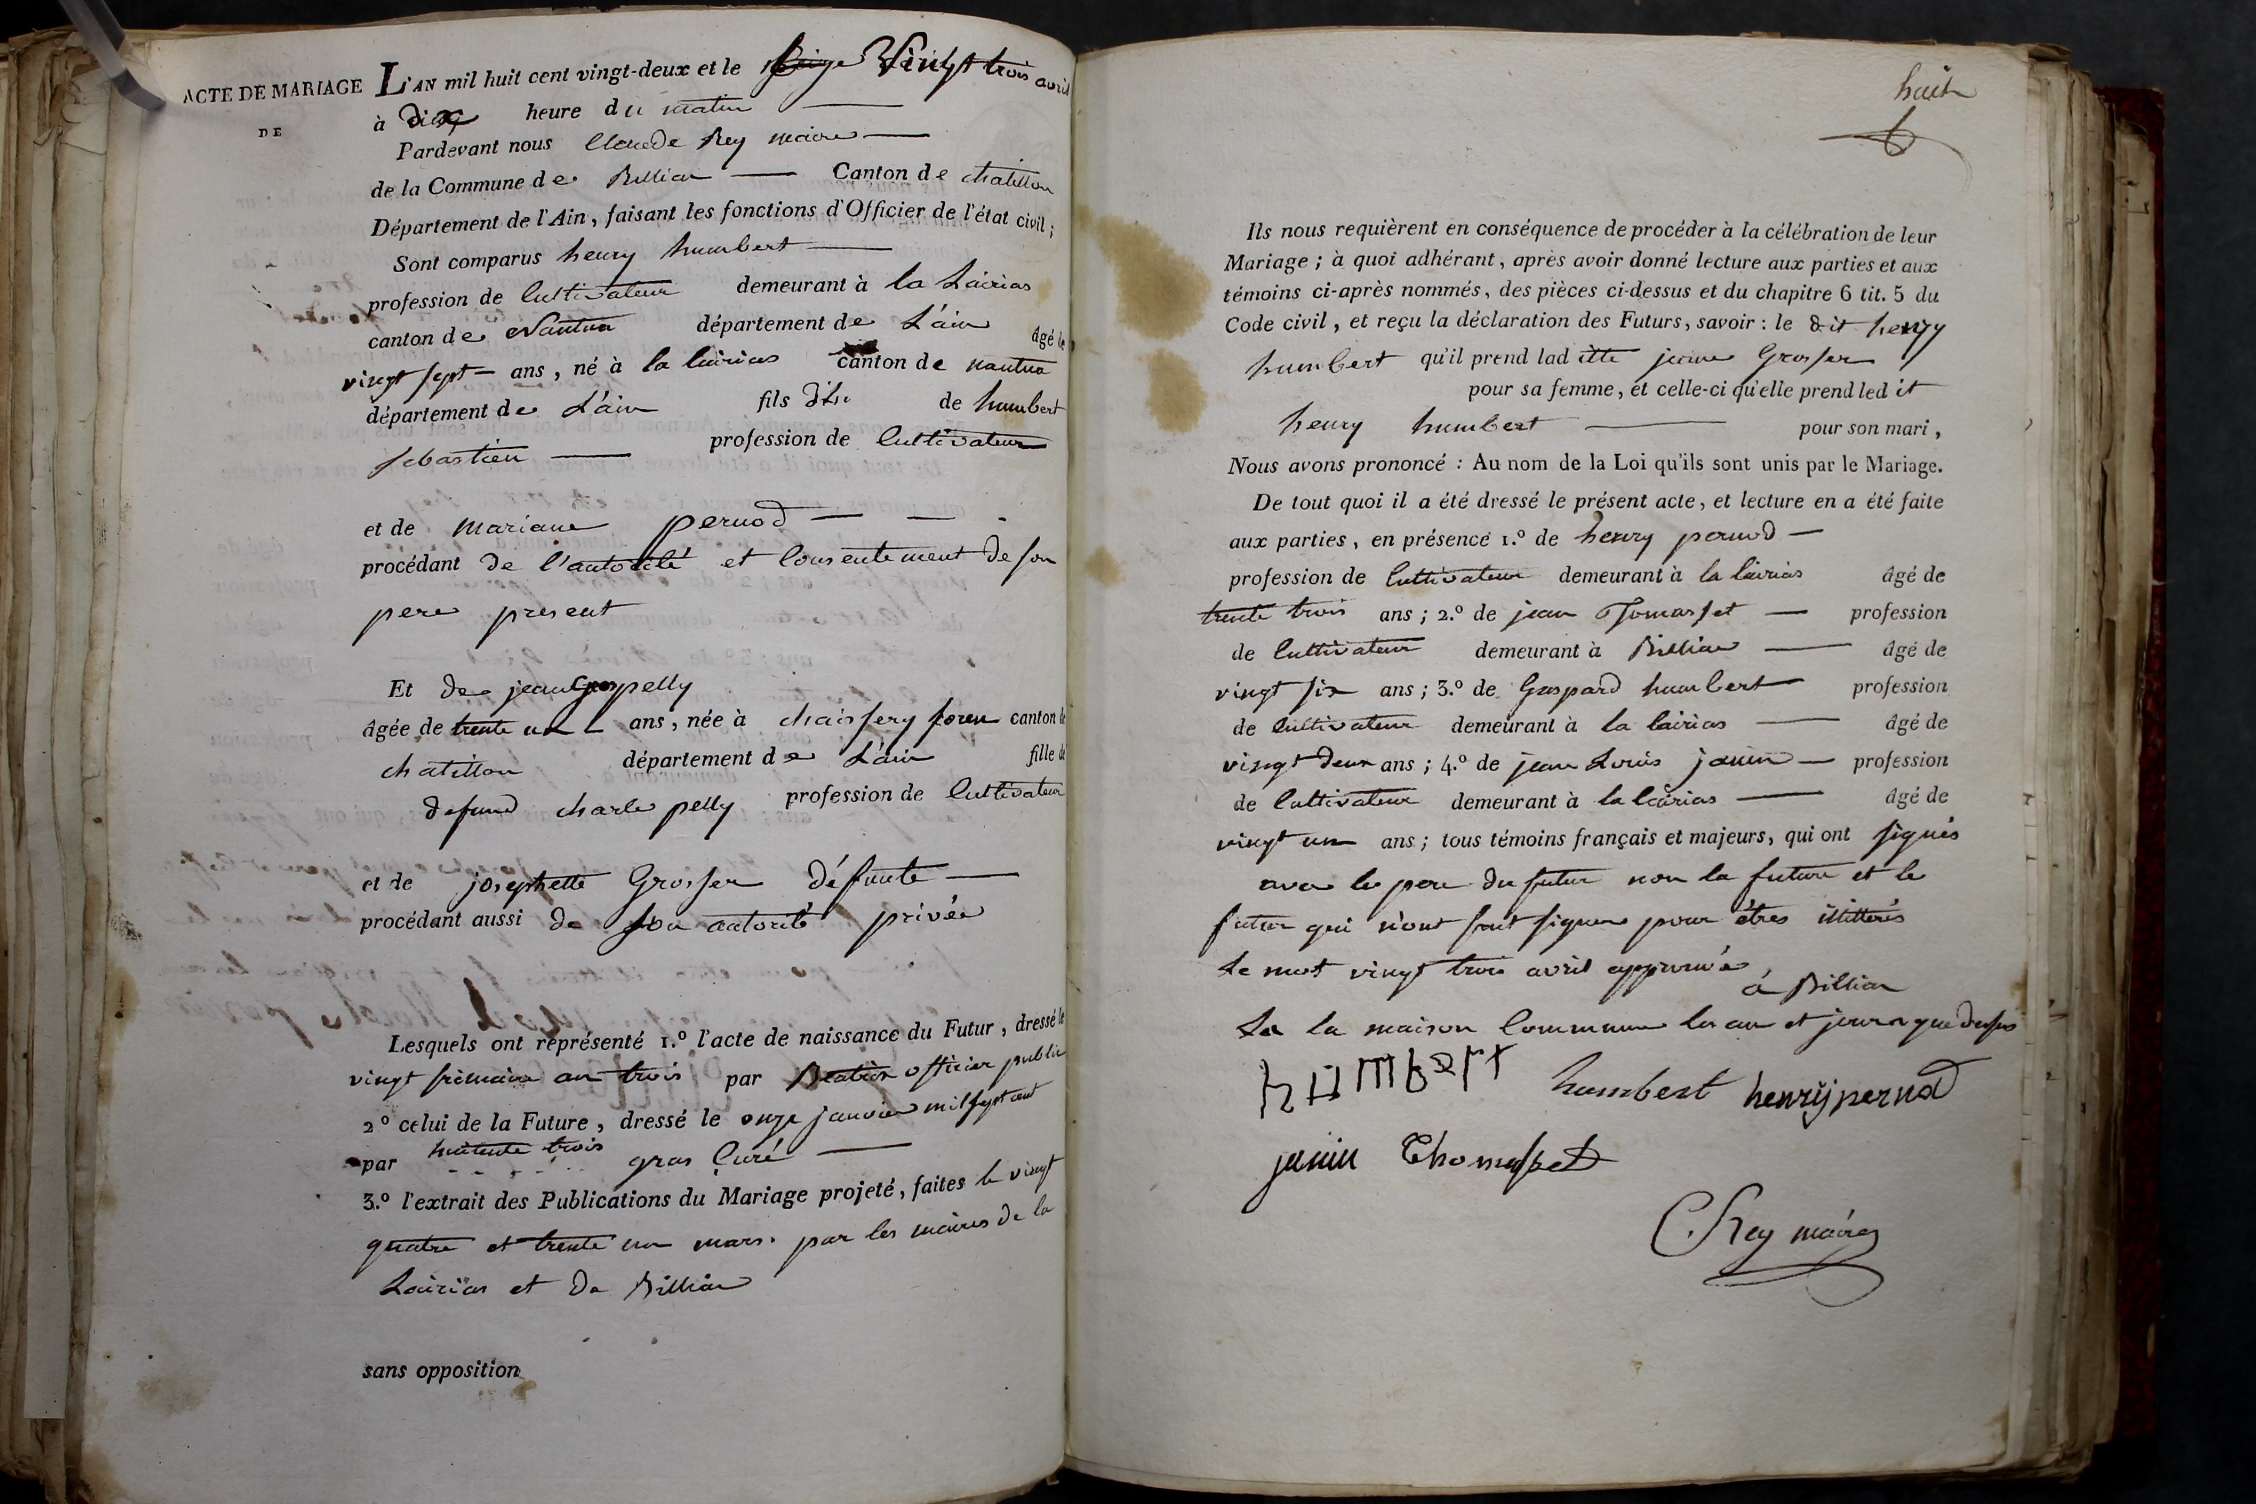 ACTE DE MARIAGE
DE
L'AN mil huit cent vingt-deux et le Vingt trois avril
à dix heure du matin
Pardevant nous Claude Rey maire
de la Commune de Billiat Canton de chatillon
Département de l'Ain, faisant les fonctions d'Officier de l'état civil ;
Sont comparus henry humbert
profession de Cultivateur demeurant à la Lairias
canton de Nantua département de L'ain âgé de
vingt sept ans, né à la lairias canton de nantua
département de L'ain fils de humbert
sebastien profession de Cultivateur
et de mariane pernod
procédant de l'autorité et Consentement de son
pere present
Et de jean pelly
âgée de trente un ans, née à chaisfery foren canton de
chatillon département de L'ain fille de
defund charle pelly profession de Cultivateur
et de josephette Grosfer défunte
procédant aussi de son autorité privée
Lesquels ont représenté 1.º l'acte de naissance du Futur, dressé le
vingt frimaire an trois par officier public
2º celui de la Future, dressé le onze janvier mil sept cent
huitente trois
par gras Curé
3.º l'extrait des Publications du Mariage projeté, faites le vingt
quatre et trente un mars. par les maires de la
Lairias et de Billiat
sans opposition
huit
Ils nous requièrent en conséquence de procéder à la célébration de leur
Mariage ; à quoi adhérant, après avoir donné lecture aux parties et aux
témoins ci-après nommés, des pièces ci-dessus et du chapitre 6 tit. 5 du
Code civil, et reçu la déclaration des Futurs, savoir : le dit henry
humbert qu'il prend lad itte jeanne Grosfer
pour sa femme, et celle-ci qu'elle prend led it
henry humbert pour son mari,
Nous avons prononcé : Au nom de la Loi qu'ils sont unis par le Mariage.
De tout quoi il a été dressé le présent acte, et lecture en a été faite
aux parties, en présence 1.º de henry pernod
profession de Cultivateur demeurant à la lairias âgé de
trente trois ans ; 2.º de jean Thomasset profession
de Cultivateur demeurant à Billiat âgé de
vingt six ans ; 3.º de Gaspard humbert profession
de Cultivateur demeurant à la lairias âgé de
vingt deux ans ; 4.º de jean Louis janin profession
de Cultivateur demeurant à la lairias âgé de
vingt un ans ; tous témoins français et majeurs, qui ont signés
avec le pere du futur non la future et le
futur qui n'ont sout signer pour êtres illitterés
Le mot vingt trois avril approuvé
à Billiat
la maison Commune les an et jour que dessus
humbert
humbert henrÿ pernod
janin Thomasset
C. Rey maire